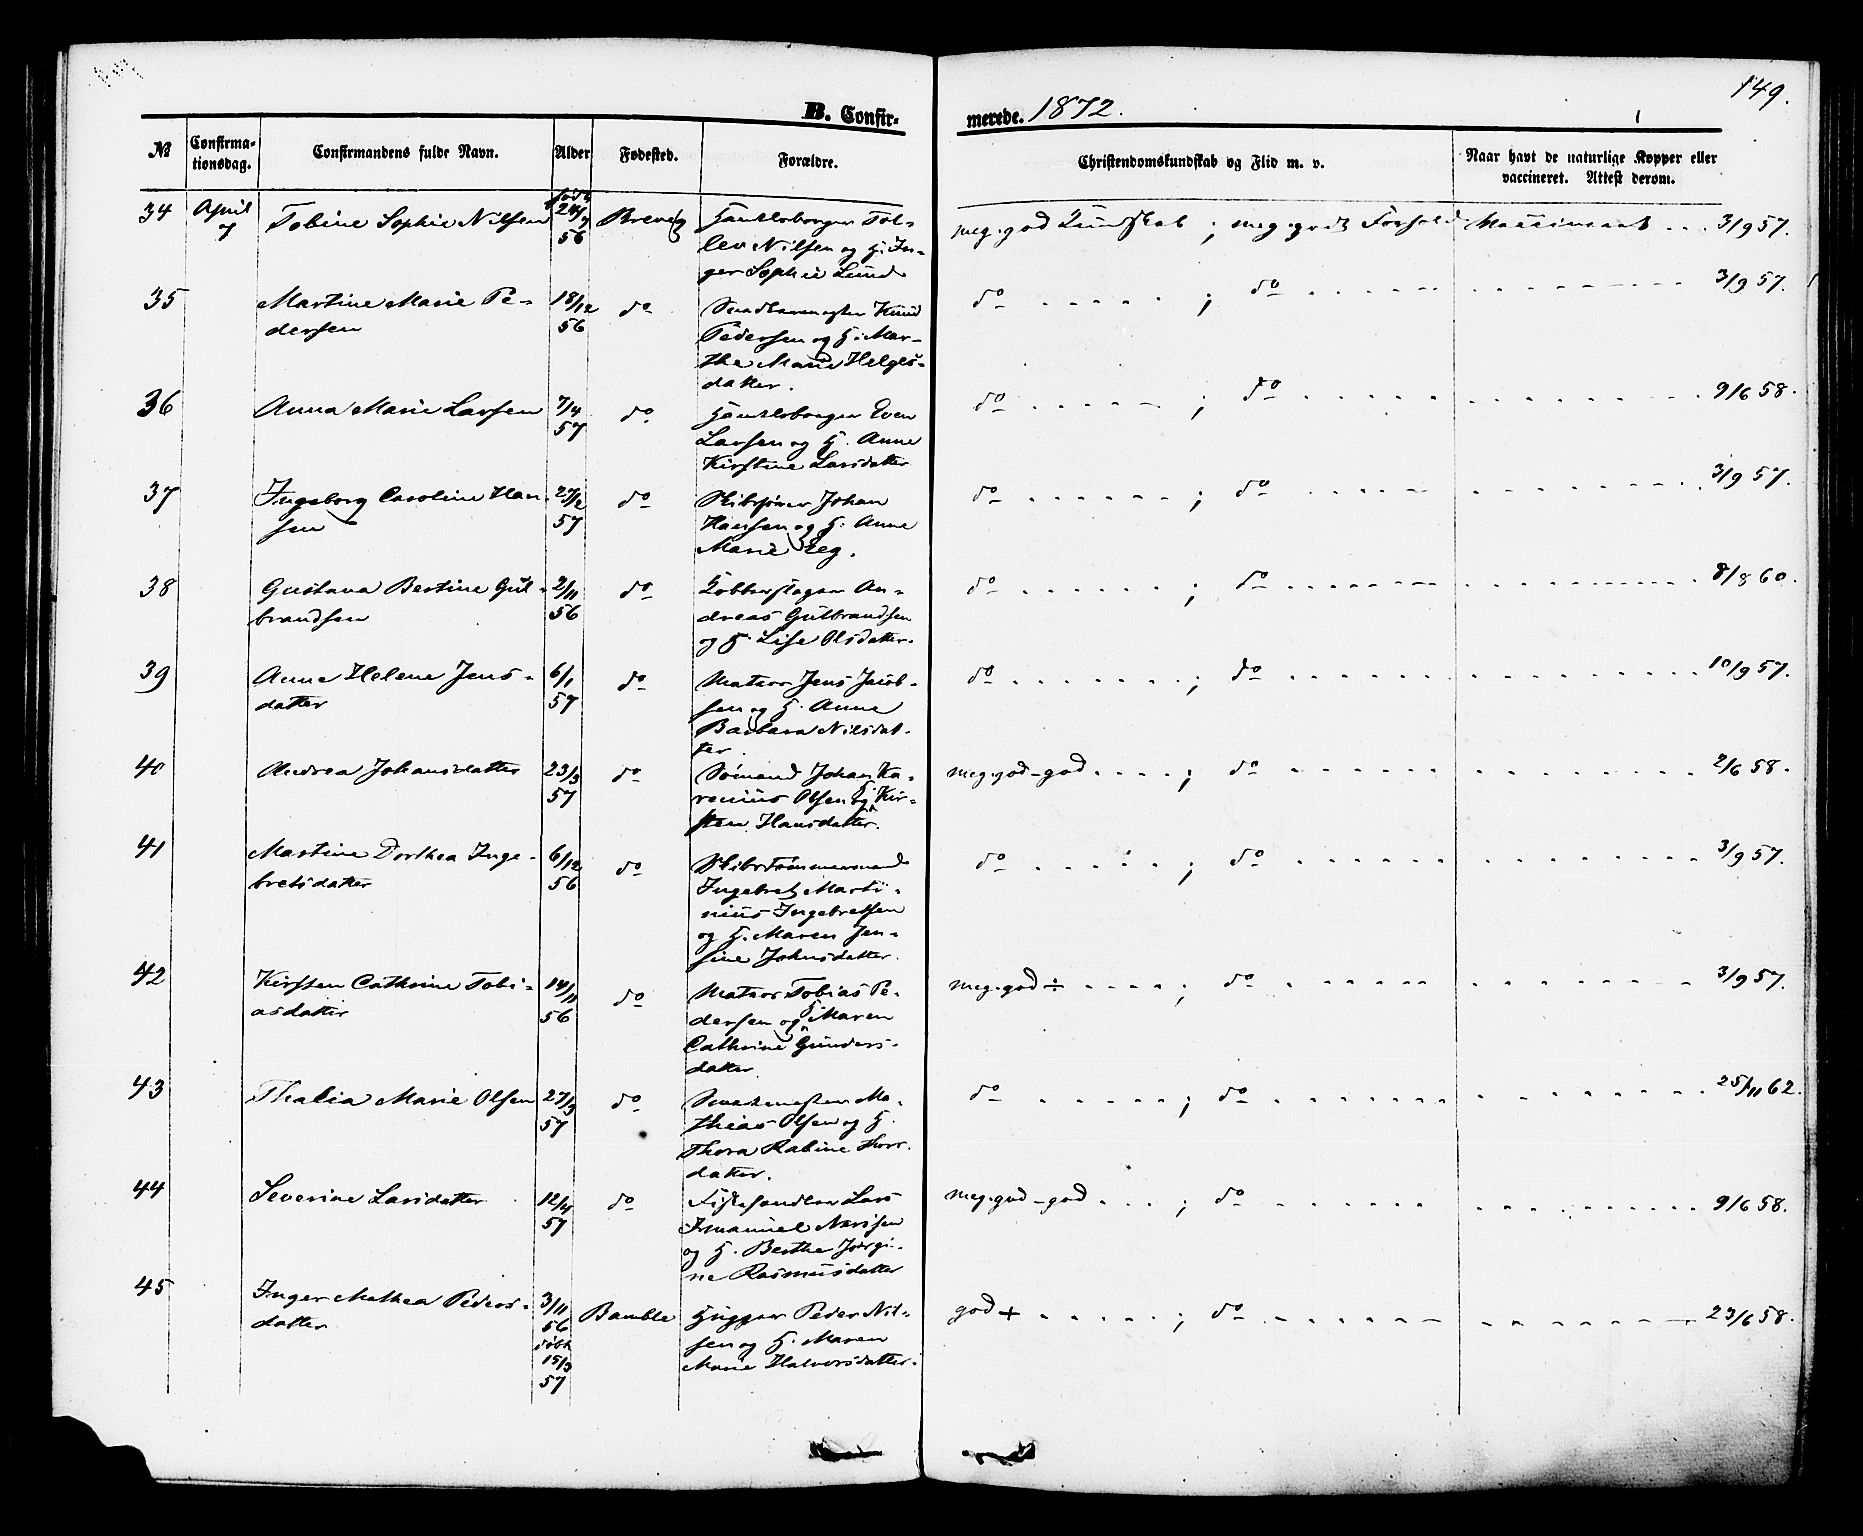 149.
B. Confir-
merede. 1872.
№
Confirma-
tionsdag.
Confirmandens fulde Navn.
Alder
Fødested.
Forældre.
Christendomskundskab og Flid m. v.
Naar havt de naturlige Kopper eller
vaccineret. Attest derom.
34 April 7 Tobine Sophie Nilsen født 24/7 56 Brevig
Tol-
lev Nilsen og H. In-
ger Sophie Lund
meg. god Kundskab ; meg. godt Forhold Vaccineret . . . 3/9 57.
35 Martine Marie Pe-
dersen
18/12 56 do
Knud
Pedersen og H. Mar-
the Marie Helges-
datter.
do ; do 3/9 57.
36 Anna Marie Larsen 7/4 57 do
Even
Larsen og H. Anne
Kirstine Larsdatter
do ; do 9/6 58.
37 Ingeborg Caroline Han-
sen
27/2 57 do
Skibsfører Johan
Hansen og H. Anne
Marie Eeg.
do ; do 3/9 57.
38 Gustava Bertine Gul-
brandsen
2/11 56 do
Kobberslager An-
dreas Gulbrandsen
og H. Lise Olsdatter.
do ; do 8/8 60.
39 Anne Helene Jens-
datter
6/1 57 do
Matros Jens Jacob-
sen og H. Anne
Barbara Nilsdat-
ter.
do ; do 10/9 57.
40 Andrea Johansdatter 23/3 57 do
Sømand Johan Ka-
renius Olsen og H. Kir-
sten Hansdatter.
meg. god - god ; do 2/6 58.
41 Martine Dorthea Inge-
bretsdatter
6/12 56 do
Skibstømmermand
Ingebret Marti-
nius Ingebretsen
og H. Maren Jen-
sine Johnsdatter.
do ; do 3/9 57.
42 Kirsten Cathrine Tobi-
asdatter
14/11 56 do
Matros Tobias Pe-
dersen og H. Maren
Cathrine Gunders-
datter.
meg. god ÷ ; do 3/9 57.
43 Thalia Marie Olsen 27/3 57 do
Ma-
thias Olsen og H.
Thora Rabine Thors-
datter.
do ; do 25/11 62.
44 Severine Larsdatter 12/4 57 do
Fiskehandler Lars
og H. Berthe Jørgi-
ne Rasmusdatter
meg. god - god ; do 9/6 58.
45 Inger Mathea Peders-
datter
3/11 56 døbt 15/3 57 Bamble
Peder Nil-
sen og H. Maren
Marie Halvorsdatter.
god + ; do 23/6 58.